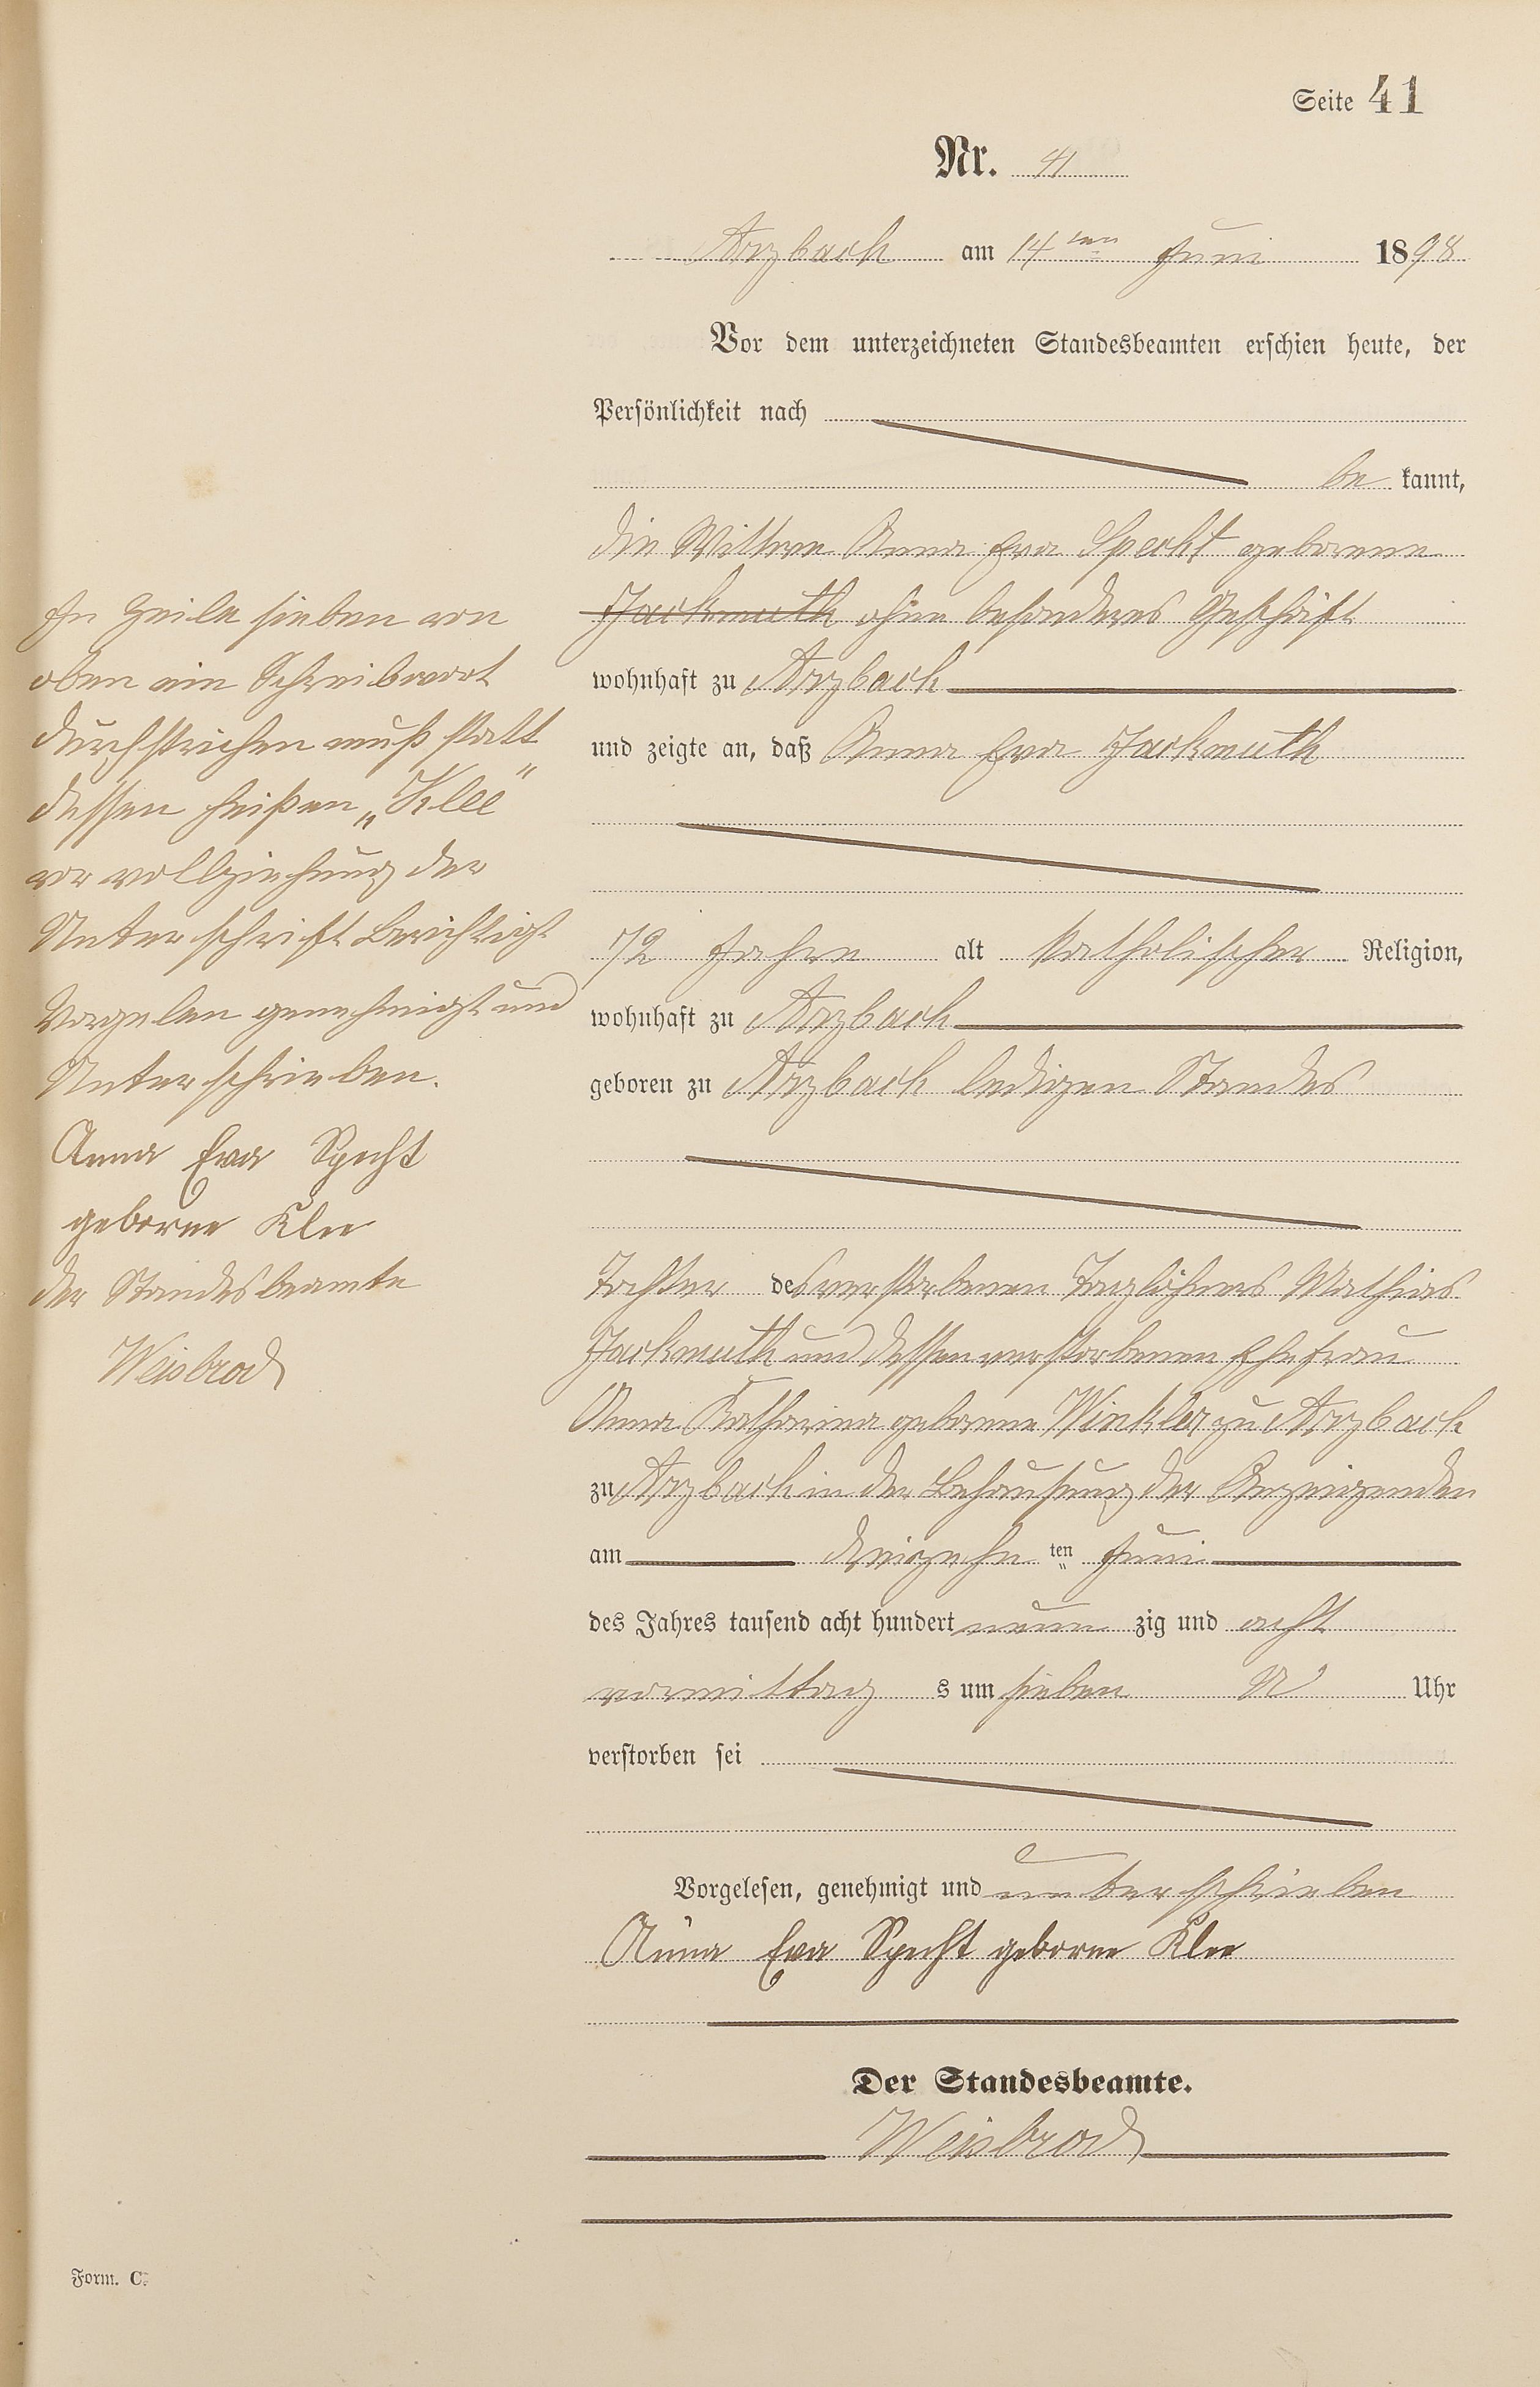 Seite 41
Nr. 41
Arzbach am 14ten Juni 1898
Vor dem unterzeichneten Standesbeamten erschien heute, der
Persönlichkeit nach
be kannt,
die Wittwe Anna Eva Specht geborene
Jackmuth ohne besonderes Geschäft
wohnhaft zu Arzbach
und zeigte an, daß Anna Eva Jackmuth
72 Jahre alt katholischer Religion,
wohnhaft zu Arzbach
geboren zu Arzbach ledigen Standes
Tochter des verstorbenen Taglöhners Mathias
Jackmuth und dessen verstorbenen Ehefrau
Anna Katharina geborene Winkler zu Arzbach
zu Arzbach in der Behausung der Anzeigenden
am dreizehn ten Juni
des Jahres tausend acht hundert neun zig und acht
vormittag s um sieben U Uhr
verstorben sei
Vorgelesen, genehmigt und unterschrieben
Anna Eva Specht geborne Klee
Der Standesbeamte.
Weisbrod
In Zeile sieben von
oben ein Schreibwort
durchstrichen muß statt
dessen heißen „Klee"
vor vollziehung der
Unterschrift Berichtigt
Vorgelen genehmigt und
Unterschrieben.
Anna Eva Specht
geborne Klee
der Standesbeamte
Weisbrod
Form. C.